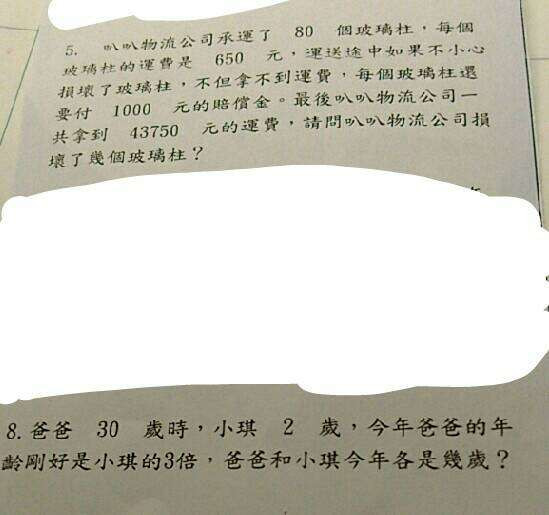 5. 叭叭物流公司承運了 80 個玻璃柱，每個
玻璃柱的運費是 650 元，運送途中如果不小心
損壞了玻璃柱，不但拿不到運費，每個玻璃柱還
要付 1000 元的賠償金。最後叭叭物流公司一
共拿到 43750 元的運費，請問叭叭物流公司損
壞了幾個玻璃柱？
8.爸爸 30 歲時，小琪 2 歲，今年爸爸的年
齡剛好是小琪的3倍，爸爸和小琪今年各是幾歲？